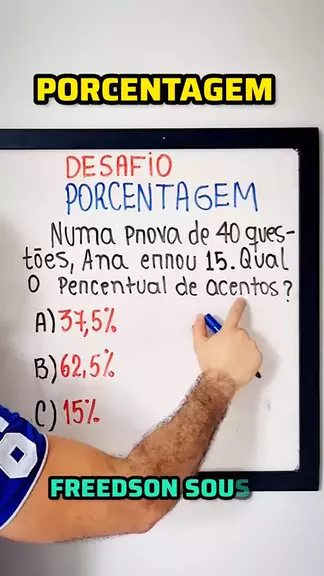 PORCENTAGEM
DESAFIO
PORCENTAGEM
Numa prova de 40 ques-
tões, Ana errou 15. Qual
o percentual de acertos?
A) 37,5%
B) 62,5%
C) 15%
FREEDSON SOUS